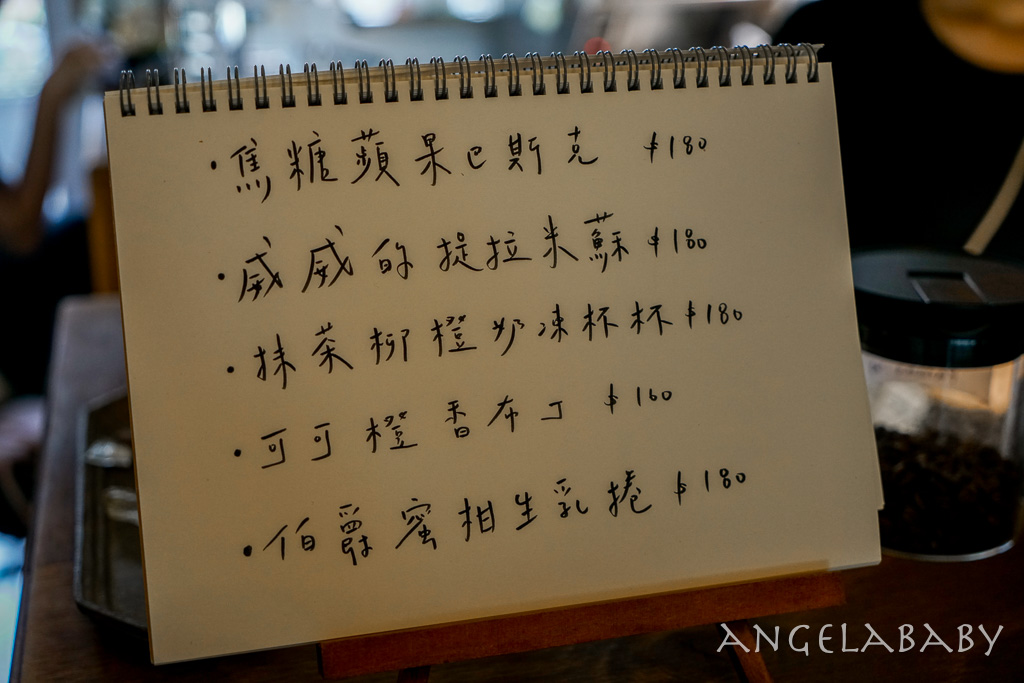 ・焦糖蘋果巴斯克 $180
・威威的提拉米蘇 $180
・抹茶柳橙奶凍杯杯 $180
・可可橙香布丁 $160
・伯爵蜜柑生乳捲 $180
ANGELABABY